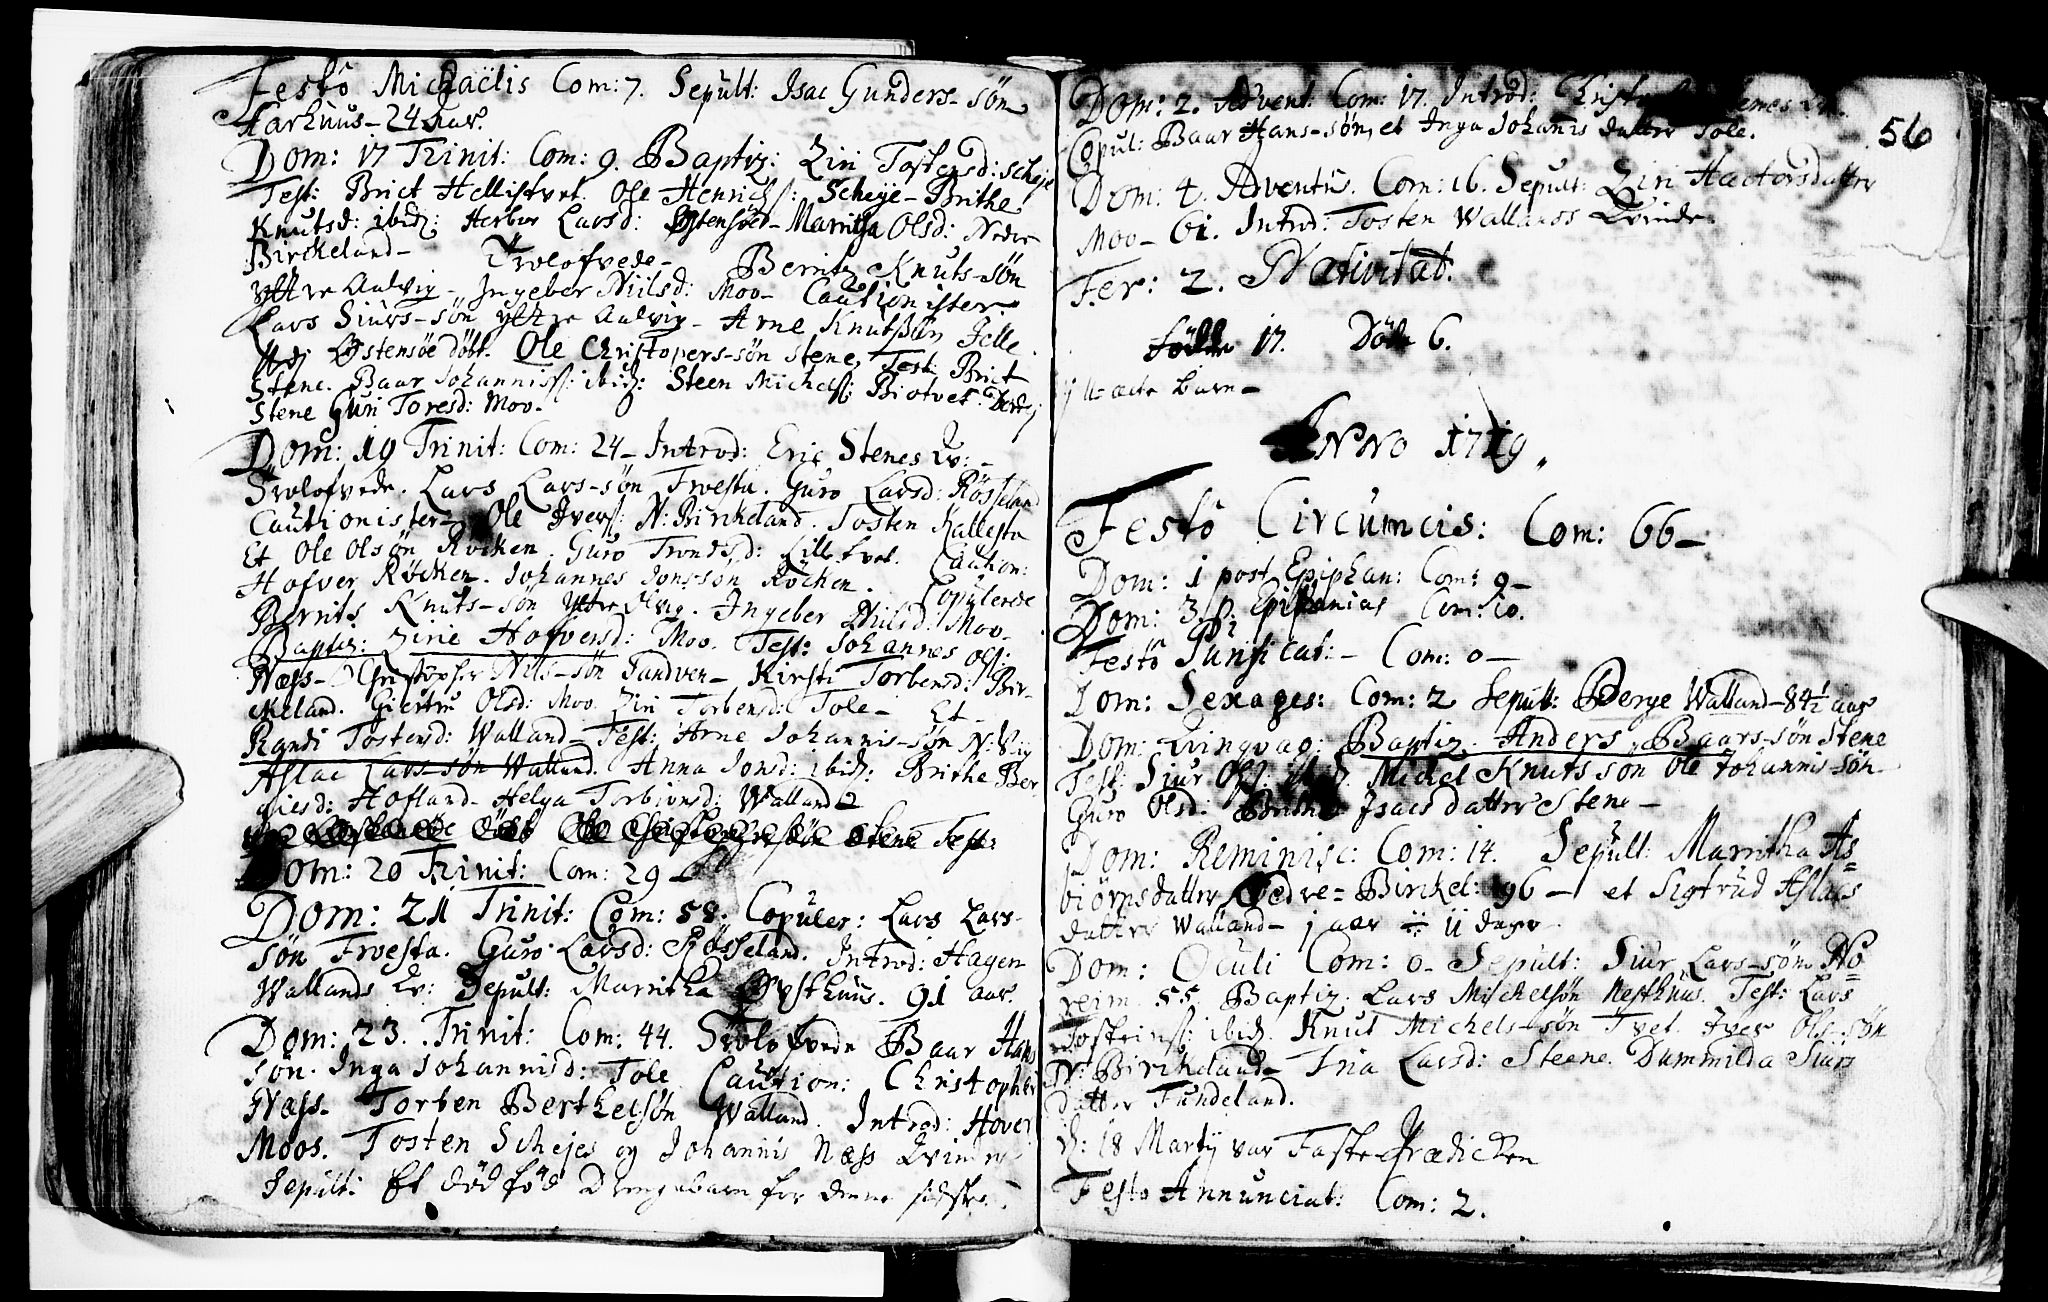 Festô Michaëlis Com: 7. Sepult: Isac Gunders-søn
Aarhuus - 24 Aar.
Dom: 17 Trinit: Com: 9. Baptiz: Ziri Tostensd: Scheje
Test: Brict Hellistvet. Ole Henrichs: Scheye - Brithe
Knutsd: ibid: Herbor Larsd: Østensøe - Marritha Olsd: Nedre
Birckeland - Trolofvede - Bernt Knuts-søn
yttre Aalvig - Ingebor Niilsd: Moo - Cautionister
Lars Siurs-søn yttre Aalvig - Arne Knutssøn Jelle
Østensøe døbt. Ole Christopers-søn Stene, Test: Brict
Stene. Baar Johanniss: ibid: Steen Michels: Biotvet
Stene Guri Toresd: Moo.
Dom: 19 Trinit: Com: 24 - Introd: Eric Stenes Qv: -
Trolofvede. Lars Lars-søn Troesta. Guro Larsd: Røsseland
Cautionister - Ole Ivers: N: Birckeland. Tosten Kallesta
Et Ole Olsøn Røcken. Guro Trondsd: Lilletvet. Caution:
Hofver Røcken. Johannes Jons-søn Røcken. Copulerede
Bernts Knuts-søn yttre Alvig. Ingeber Niilsd: Moo -
Baptiz: Zirie Hofversd: Moo. Test: Johannes Ols:
Næss - Christopher Nils-søn Sandven - Kirsti Torbensd: Bir-
ckeland. Giertru Olsd: Moo. Ziri Torbensd: Tole - Et -
Randi Tostensd: Walland - Test: Arne Johannis-søn N: Vig
Aslac Lars-søn Walland. Anna Jonsd: ibid: Brithe Ber
giesd: Hofland - Helga Torbiønsd: Walland
Stene Test:
Dom: 20 Trinit: Com: 29 -
Dom: 21 Trinit: Com: 58. Copuler: Lars Lars-
søn Troesta. Guro Larsd: Røsseland. Introd: Hagen
Wallands Qv: Sepult: Marritha Østhuus. 91 aar.
Dom: 23. Trinit: Com: 44. Trolofvede Baar Hans
søn. Inga Johannisd: Tole Caution: Christopher
Næss - Torben Berthelsøn Walland. Introd: Hover
Moos. Tosten Schejes og Johannis Næss Qvinder
Sepult: Et død fød Drengebarn for denne sidste.
Dom: 2. Advent: Com: 17. Introd:
Copul: Baar Hans-søn, et Inga Johannis datter Tole.
56
Dom: 4. Adventũ. Com: 16. Sepult: Ziri Hactorsdatter
Moo - 61. Introd: Tosten Wallands Qvinde
Fer: 2. Nativitat.
Fødde 17. Døde 6.
u-ægte barn -
Anno 1719.
Festô Circumcis: Com: 66 -
Dom: 1 post Epiphan: Com: 9 -
Dom: 3 p. Epiphanias Com: 10.
Festô Purificat: - Com: 0 -
Dom: Sexages: Com: 2 Sepult: Berge Walland - 84½ aar
Dom: Qvinqvag: Baptiz. Anders Baars-søn Stene
Test: Siur Ols: ibid. Michel Knuts søn Ole Johannis-søn
Guro Olsd: Brithe Isacs datter Stene -
Dom: Reminisc: Com: 14. Sepult: Marritha As=
biørnsdatter Nedre = Birckel: 96 - et Sigtrud Aslacs
datter Walland - 1 aar 11 dager
Dom: Oculi Com: 0 - Sepult: Siur Lars-søn No=
reim 55. Baptiz. Lars Mickelsøn Nesthuus. Test: Lars
Tostenns: ibid. Knut Michels-søn Tvet. Iver Ols-søn
N: Birckeland - Fria Larsd: Steene. Dammilda Siurs
datter Fundeland.
d: 18 Martij var Faste Prædicken
Festo Annunciat: Com: 2.